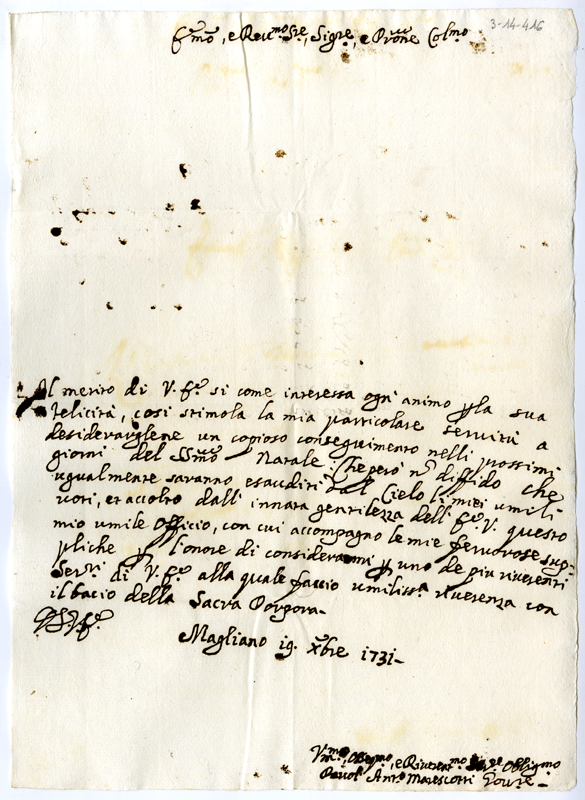 3-14-416
E.mo, e Rev.mo Sre, Sigre, e Prone Colmo
Il merito di V. E.a si come interessa ogni animo p la sua
felicità, così stimola la mia particolare servitù a
desiderargliene un copioso conseguimento nelli prossimi
giorni del SSmo Natale. Che però nõ diffido che
ugualmente saranno esauditi dal Cielo li miei umili
voti, et accolto dall' innata gentilezza dell' E.a V. questo
mio umile officio, con cui accompagno le mie fervorose sup-
pliche p l'onore di considerarmi p uno de più riverenti
Ser.ri di V. E.a alla quale faccio umiliss.a riverenza con
il bacio della Sacra Porpora.
D. V. E.a
Magliano 19. Xbre 1731.
Vmo, Obegno, e Riverentmo Obligmo
Paool Anto Marescotti Goure.